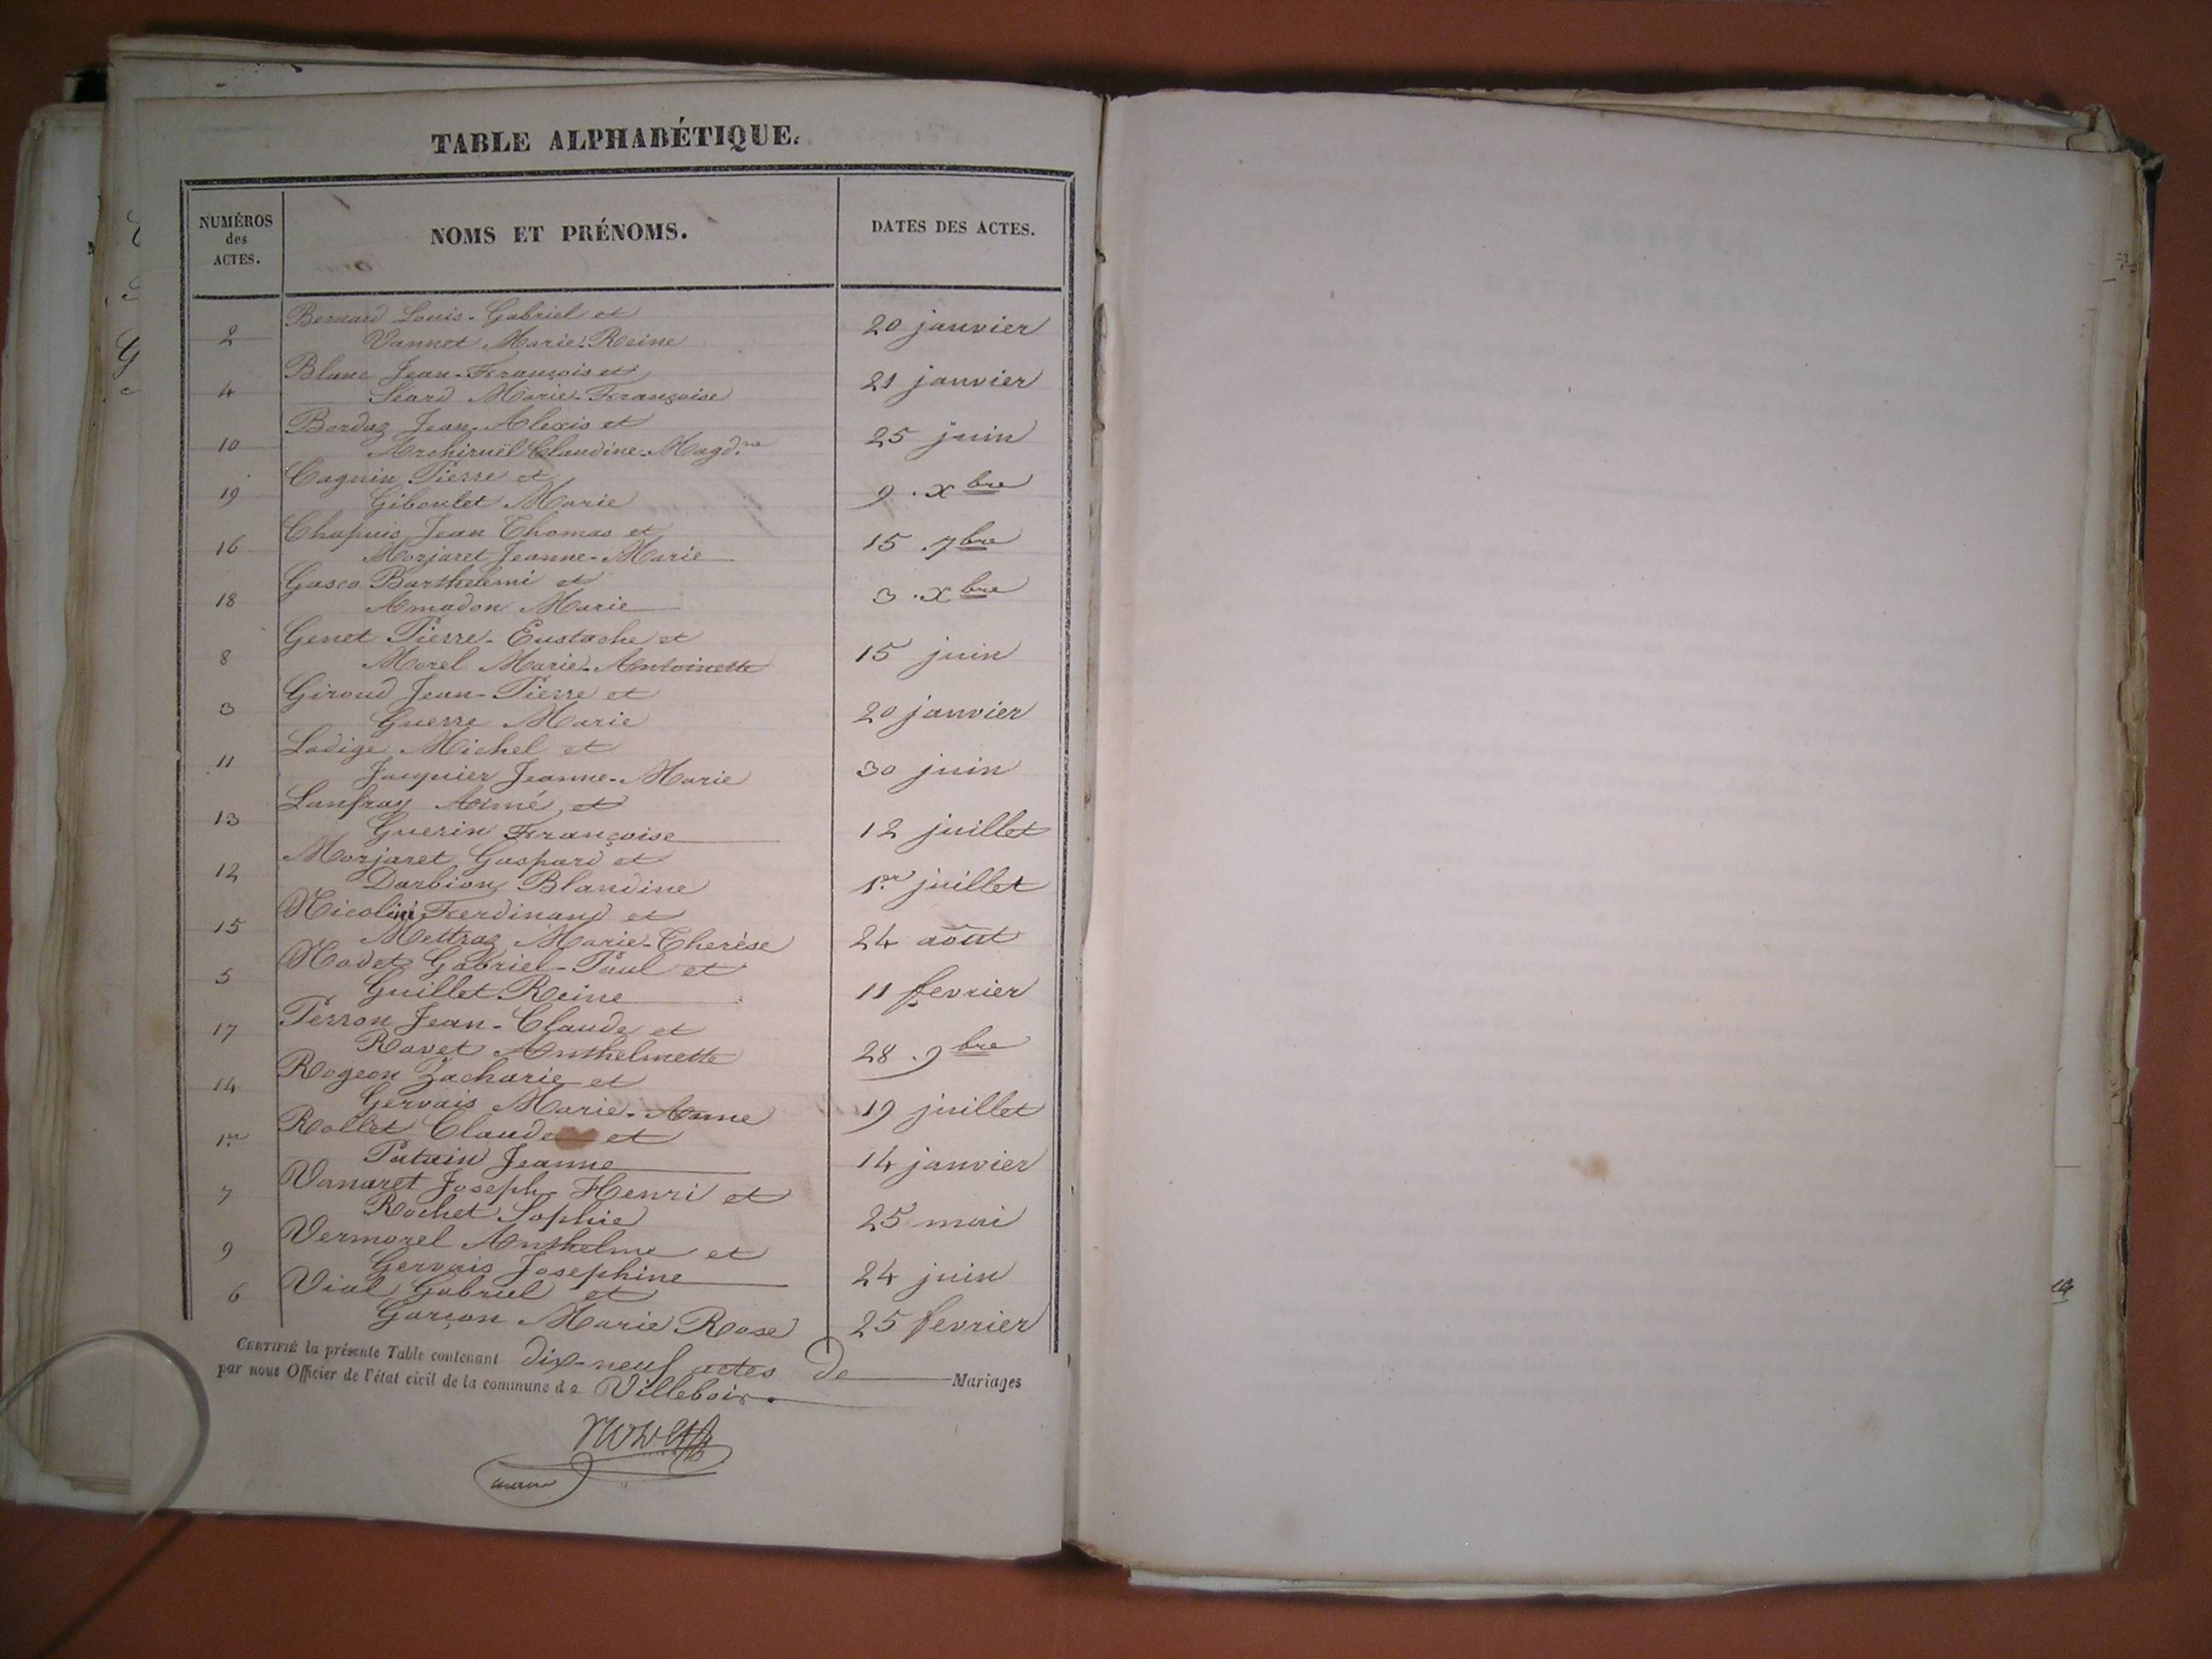 TABLE ALPHABÉTIQUE.
NUMÉROS
des
ACTES.
NOMS ET PRÉNOMS.
DATES DES ACTES.
2 Bernard Louis-Gabriel et 20 janvier
Vannet Marie-Reine
4 Blanc Jean-François et 21 janvier
Marie-Françoise
10 Bordaz Jean-Alexis et 25 juin
Claudine-Magd.ne
19 Cagnin Pierre et 9.Xbre
Giboulet Marie
16 Chapuis Jean Thomas et 15.7bre
Morjaret Jeanne-Marie
18 Gasco Barthelemi et 3.Xbre
Amadon Marie
8 Genet Pierre-Eustache et 15 juin
Morel Marie-Antoinette
3 Giroud Jean-Pierre et 20 janvier
Guerre Marie
11 Ladige Michel et 30 juin
Jacquier Jeanne-Marie
13 Lanfray Aimé et 12 juillet
Guerin Françoise
12 Morjaret Gaspard et 1er juillet
Darbion Blandine
15 Nicolini Ferdinand et 24 août
Mettraz Marie-Therèse
5 Nodet Gabriel-Paul et 11 fevrier
Guillet Reine
17 Perron Jean-Claude et 28.9bre
Ravet Anthelmette
14 Rogeon Zacharie et 19 juillet
Gervais Marie-Anne
1er Rollet Claude et 14 janvier
Patuin Jeanne
7 Vanaret Joseph-Henri et 25 mai
Rochet Sophie
9 Vermorel Anthelme et 24 juin
Gervais Josephine
6 Vial Gabriel et 25 fevrier
Garçon Marie Rose
CERTIFIÉ la présente Table contenant dix-neuf actes de Mariages
par nous Officier de l'état civil de la commune de Villebois.
maire